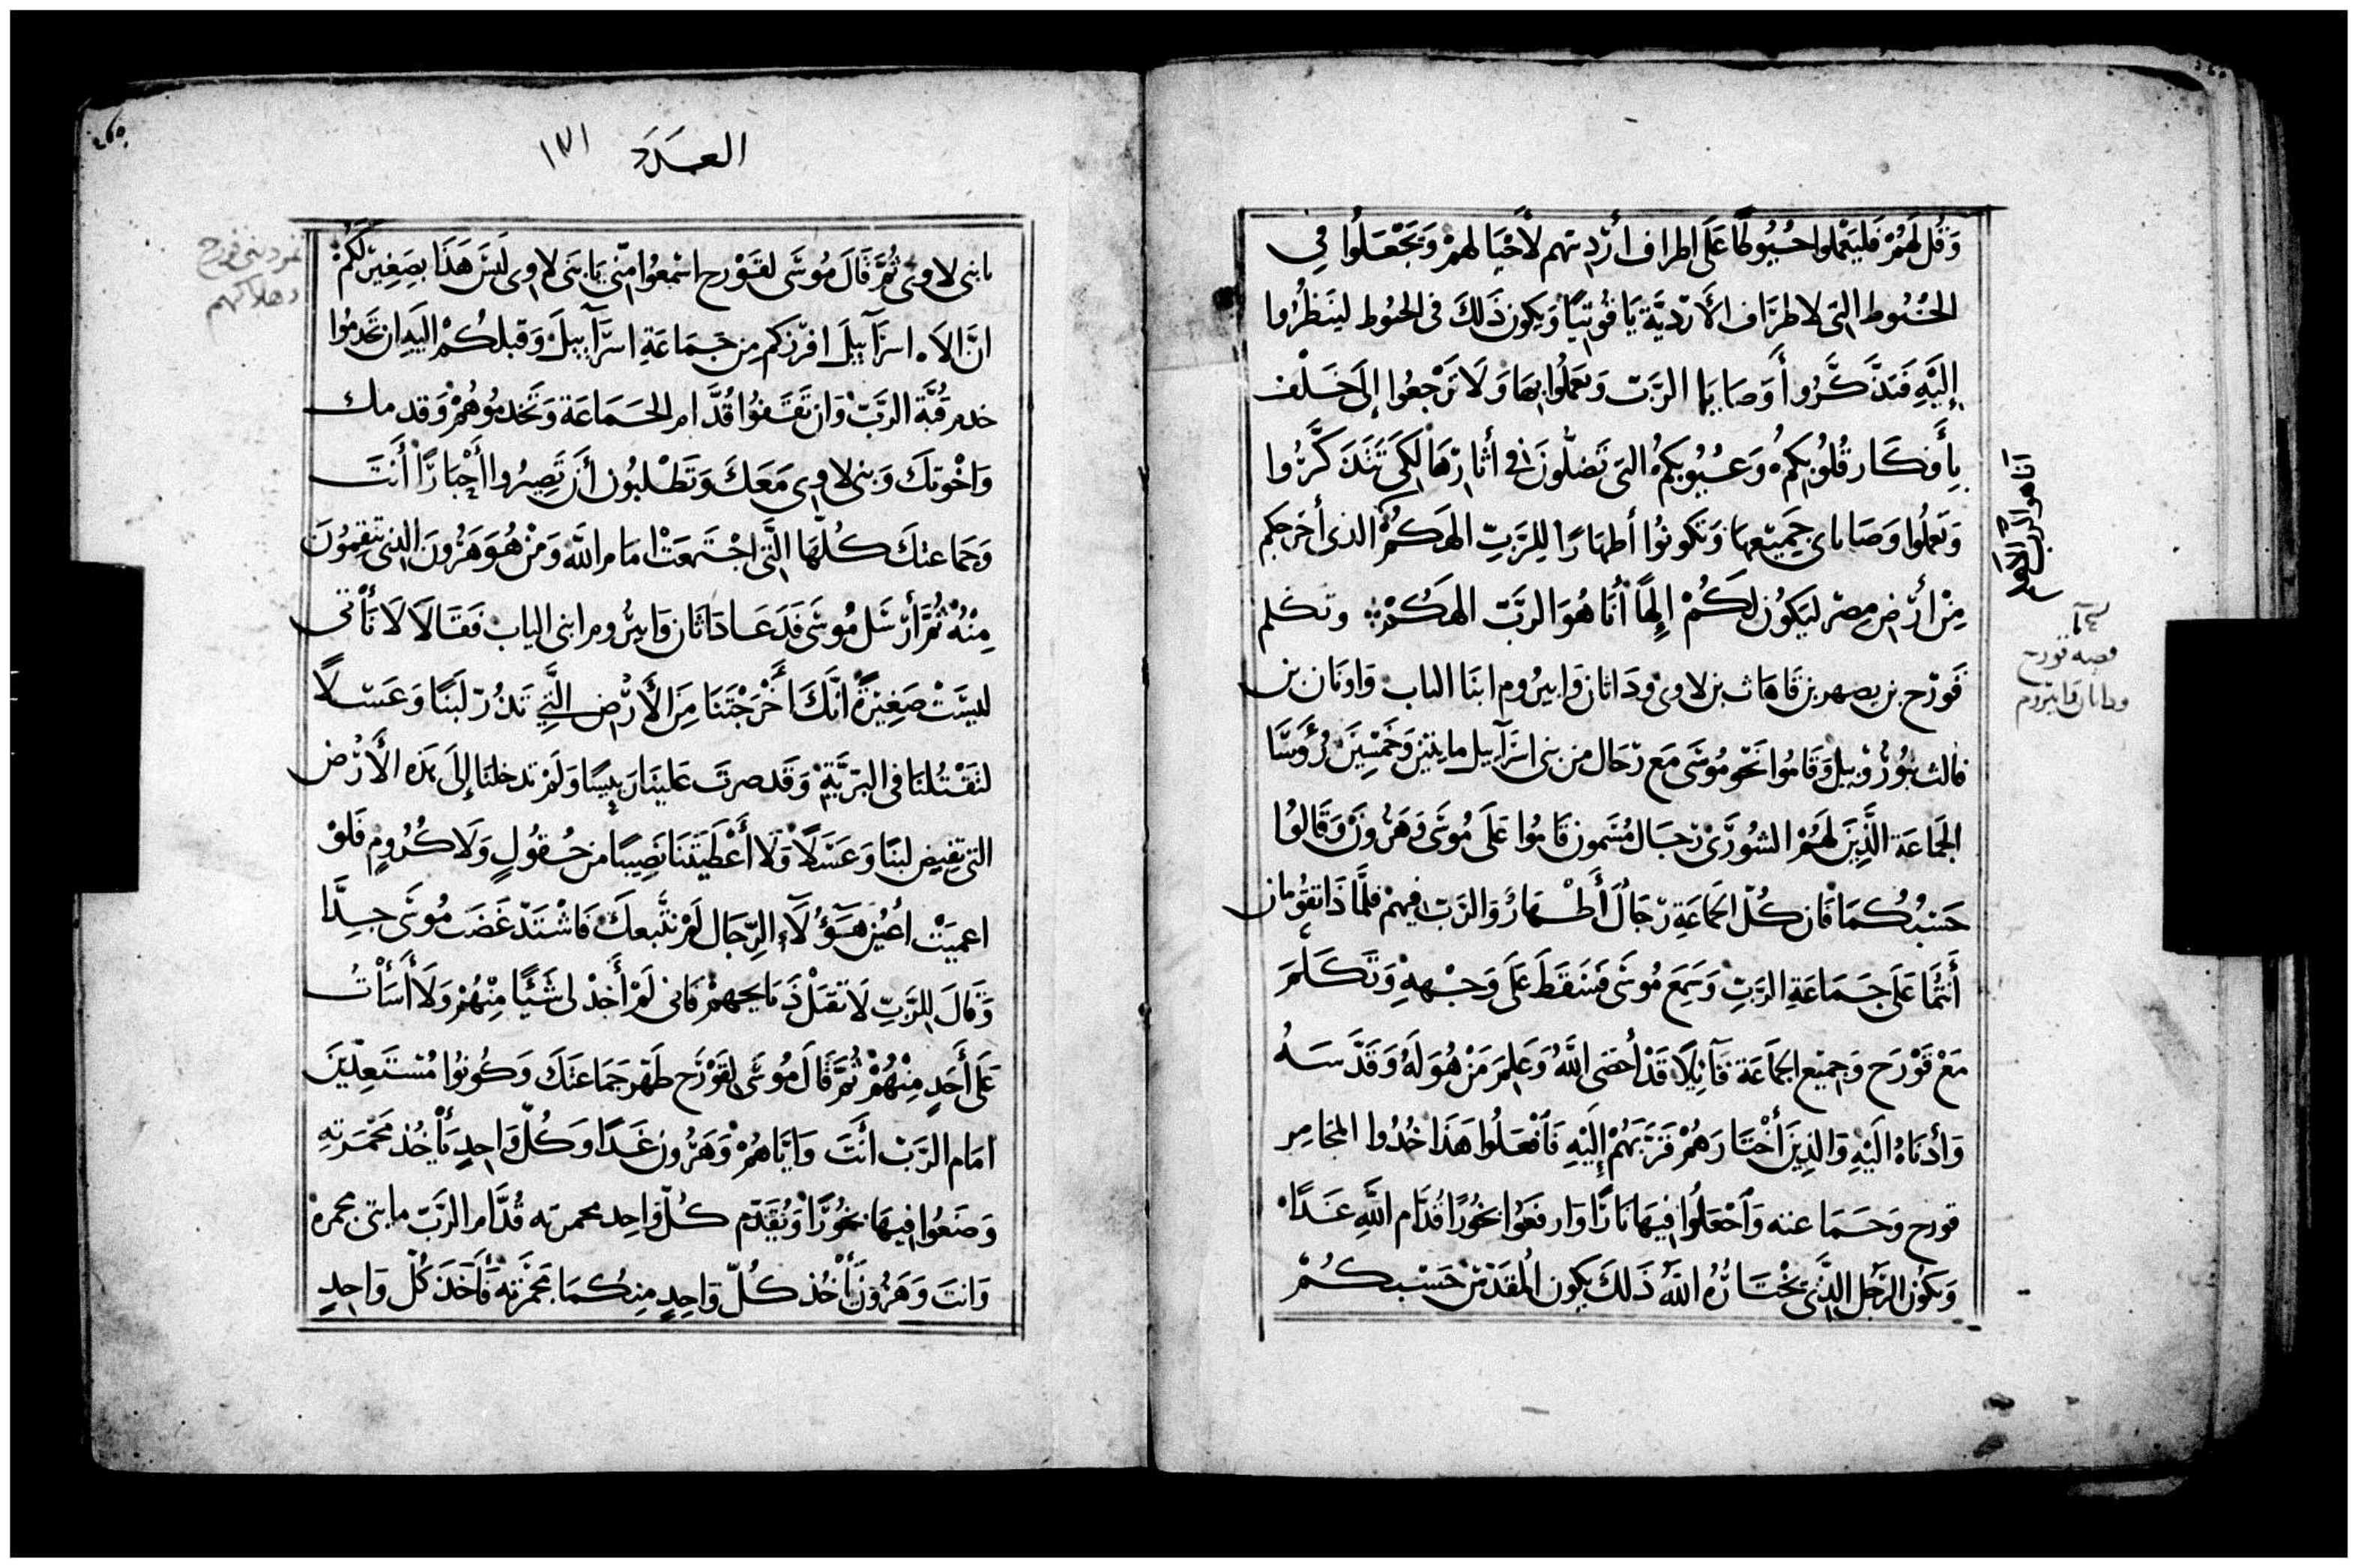 وَقُل لَهُمْ فَليَعْملوا حُبُوكًا عَلَى اطراف ارْديتهم لأجْيَالهمْ وَيَجْعَلُوا فِي
الخُيُوط التى لاطرَاف الأرْديَّة يَاقُوتيًا وَيكون ذَلكَ فى الخيُوط ليَنظُرُوا
إِليَهِ فَتذَّكَّرُوا وَصَايَا الرَّبّ وَتعملُوا بهَا وَلَا تَرْجعُوا إلَى خَلْف
بِأَفكَار قُلُوبِكُم وَعُيُوبكم التى تَضلّونَ فى أثارِهَا لِكَى تَتَذكَّرُوا
وَتعملُوا وَصَاياى جَميْعهَا وَتكونُوا أطهَارًا لِلرَّبّ الهَكمُ الذى أخرجكم
مِنْ أَرْض مِصْر ليَكُون لَكُمْ إِلهًا أنَا هُوَ الرَّبّ الهكُمْ وتكلم
قَورَح بن يصهر بن قَاهَاث بن لاوى وَدَاثان وَابيرُوم ابنَا الياب وَاونَان بن
فالث بن رُوبيل وَقَامُوا نَحْو مُوسَى مَع رجَال من بنى اسرَآييل مايتيْن وَخَمْسيَن رُؤَسَا
الجَمَاعَة الَّذِينَ لَهُمْ الشُورَى رجَال مُسَمون قَامُوا عَلَى مُوسَى وَهَرُونْ وَقَالُوا
حَسْبُكُمَا فَان كُلّ الجَمَاعَةِ رجَالٌ أَطْهَارٌ وَالرَّبّ فيهمْ فلمَّاذَا تقُومَان
أَنْتُمَا عَلَى جَمَاعَةِ الرَّبّ وَسَمِعَ مُوسَى فَسَقَطَ عَلَى وَجْههِ وَتَكَلَّمَ
مَعْ قَوْرَح وَجميْع الجَمَاعَة قَآئِلًا قَدْ أحصَى اللَّهُ وَعَلِمَ مَنْ هُوَ لَهُ وَقَدَّسَهُ
وَأدنَاهُ الَيْهِ وَالذِينَ أخْتَارَهُمْ قَرَّبَهُمْ إِليَهِ فَافْعَلُوا هَذَا خُدُوا المجَامِر
قورح وَجَمَاعته وَاجْعَلُوا فِيهَا نَارًا وَارفعَوُا بخُورًا قُدَّام اللَّهِ غَدًا
وَيكُون الرَّجُل الذَّى يَخْتَارُهُ اللَّهُ ذَلكَ يكون المُقَدَّسْ حَسْبكُمْ
انا هو الرب الهكم
قصه قورح
وداثان وابيروم
العدد ١٣١
يابنى لاوى ثُمَّ قَالَ مُوسَى لقَوْرح اسْمعُوا مِنّى يَابنَى لاوى لَيسَ هَذَا بصَغِيْر لَكُمْ
انَّ الاَه اسرَآييلَ افرَزكم مِن جَمَاعَةِ اسرَّآييلَ وَقبلكُمْ اليَه ان تخَدمُوا
خدم قُبَّة الرَّبّ وَان تَقَفُوا قُدَّام الجَمَاعَة وَتَخْدمُوهُمْ وَقدمك
وَاخْوتكَ وَبنى لاوى مَعَكَ وَتَطْلبُون أن تَصِيرُوا أحْبَارًا أَنتَ
وَجَمَاعتكَ كُلّهَا الَّتى اجْتَمَعَتْ امَام اللَّه وَمَنْ هُوَ هَرُونَ الذِى تنقِمُونَ
مِنْهُ ثُمَّ أرْسَل مُوسَى فَدَعَا دَاثَان وَابيرُوم ابنى الياب فَقَالَا لَا نَأتى
ليسَتْ صَغِيْرَةً انَّكَ أَخْرَجْتَنَا مِنَ الأَرْض الَّتِى تَدُرّ لَبَنًا وَعَسَلًا
لتقْتُلنَا فى البَرّيَّةِ وَقَد صرتَ عَلينَا رَييسًا وَلَمْ تدخلنَا إلَى هَذه الأَرْض
التى تفِيض لبنًا وَعَسَلًا وَلَا أَعْطَيتَنَا نَصِيبًا من حُقُولٍ وَلَا كُرُومٍ فَلوْ
اعميَتْ أعْيُن هَؤُلَاءِ الرّجَال لَمْ نتّبعكَ فَاشْتَدّ غَضَب مُوسَى جدًّا
وَقَالَ لِلرَّبِّ لَا تقبَلْ ذَبَايحهمْ فَانى لَمْ أَخذْ لى شَيًْا مِنْهُمْ وَلَا أَسَأْتُ
عَلَى أَحَدٍ مِنْهُمْ ثُمَّ قَالَ مُوسَى لقَوْرَح طَهّر جَمَاعتَكَ وَكُونُوا مُسْتَعِدّينَ
امَام الرَّبّ أنَتَ وَايَّاهُمْ وَهَرُون غَدًا وَكُلّ وَاحِدٍ يَأْخُذ مَجْمَرَتهِ
وَضَعُوا فِيهَا بخُورًا وَيُقَدّم كُلّ وَاحِد مجمرته قُدَّام الرَّبّ مايتى مجمرة
وَانتَ وَهَرُون يَأْخُذ كُلّ وَاحِدٍ مِنكُمَا مَجْمَرَتهُ فَأَخَذَ كُلّ وَاحِدٍ
تمرد بنى قورح
وهلاكهم